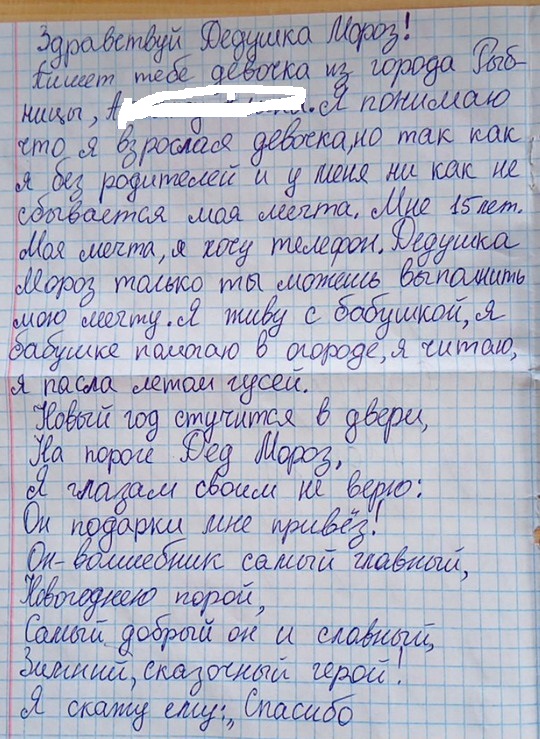 Здравствуй Дедушка Мороз!
Пишет тебе девочка из города Рыб-
ницы, Я понимаю
что я взрослая девочка, но так как
я без родителей и у меня ни как не
сбывается моя мечта. Мне 15 лет.
Моя мечта, я хочу телефон. Дедушка
Мороз только ты можешь выполнить
мою мечту. Я живу с бабушкой, я
бабушке помогаю в огороде, я читаю,
я пасла летом гусей.
Новый год стучится в двери,
На пороге Дед Мороз,
Я глазам своим не верю:
Он подарки мне привёз!
Он-волшебник самый главный,
Новогоднею порой,
Самый добрый он и славный,
Зимний, сказочный герой!
Я скажу ему:„Спасибо